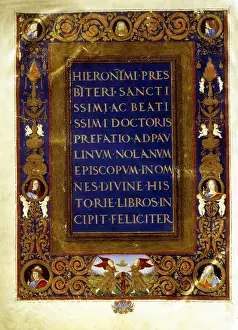 HIERONIMI PRES
BITERI SANCTI
SSIMI AC BEATI
SSIMI DOCTORIS
PREFATIO AD PAV
LINVM NOLANVM
EPISCOPVM IN OM
NES DIVINE HIS
TORIE LIBROS IN
CIPIT FELICITER